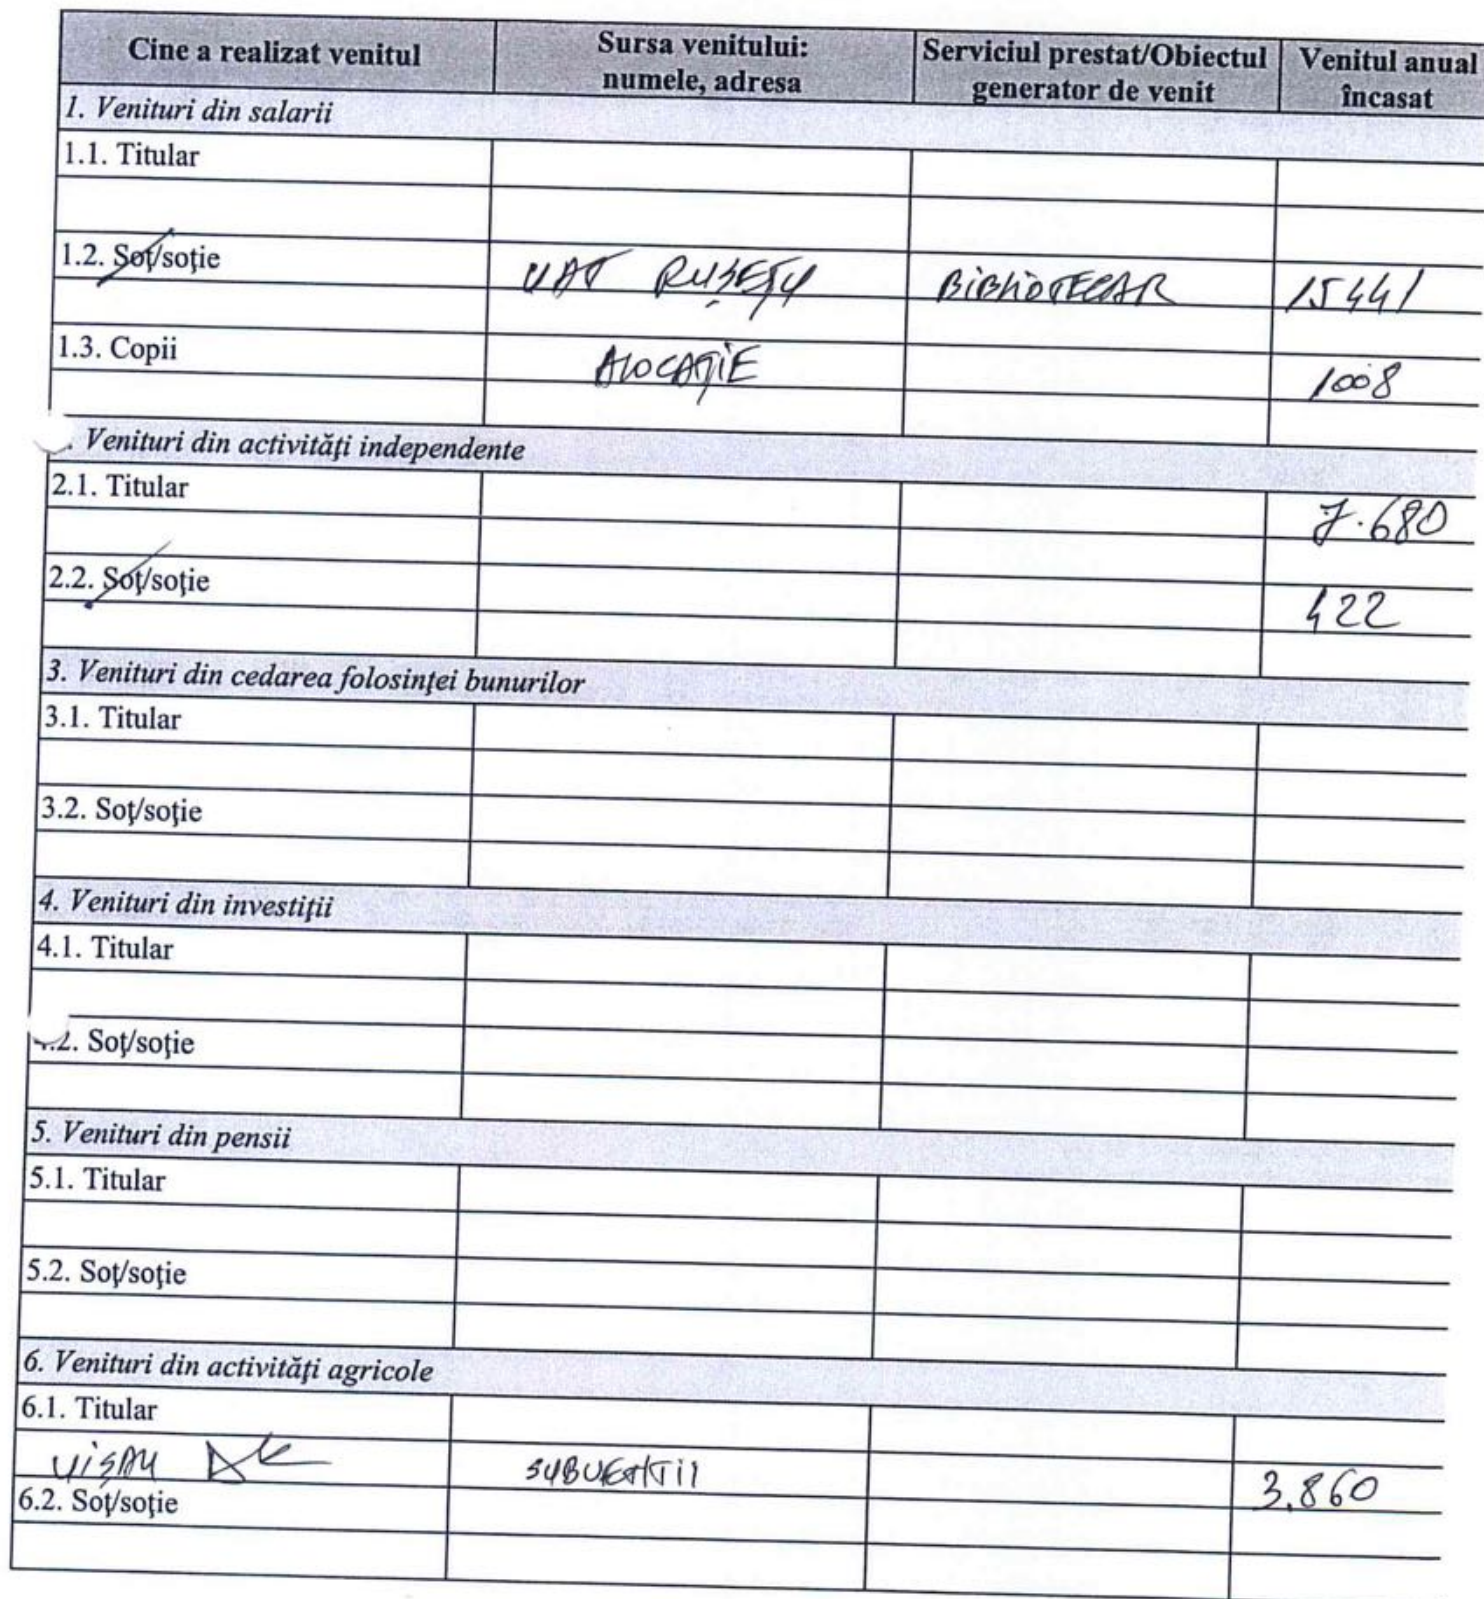 Cine a realizat venitul Sursa venitului: numele, adresa Serviciul prestat/Obiectul generator de venit Venitul anual încasat
1. Venituri din salarii
1.1. Titular
1.2. Soţ/soţie UAT RUȘEȚU BIBLIOTECAR 15441
1.3. Copii ALOCAȚIE 1008
. Venituri din activităţi independente
2.1. Titular 7.680
2.2. Soţ/soţie 422
3. Venituri din cedarea folosinţei bunurilor
3.1. Titular
3.2. Soţ/soţie
4. Venituri din investiţii
4.1. Titular
.2. Soţ/soţie
5. Venituri din pensii
5.1. Titular
5.2. Soţ/soţie
6. Venituri din activităţi agricole
6.1. Titular
SUBVENTII 3.860
6.2. Soţ/soţie